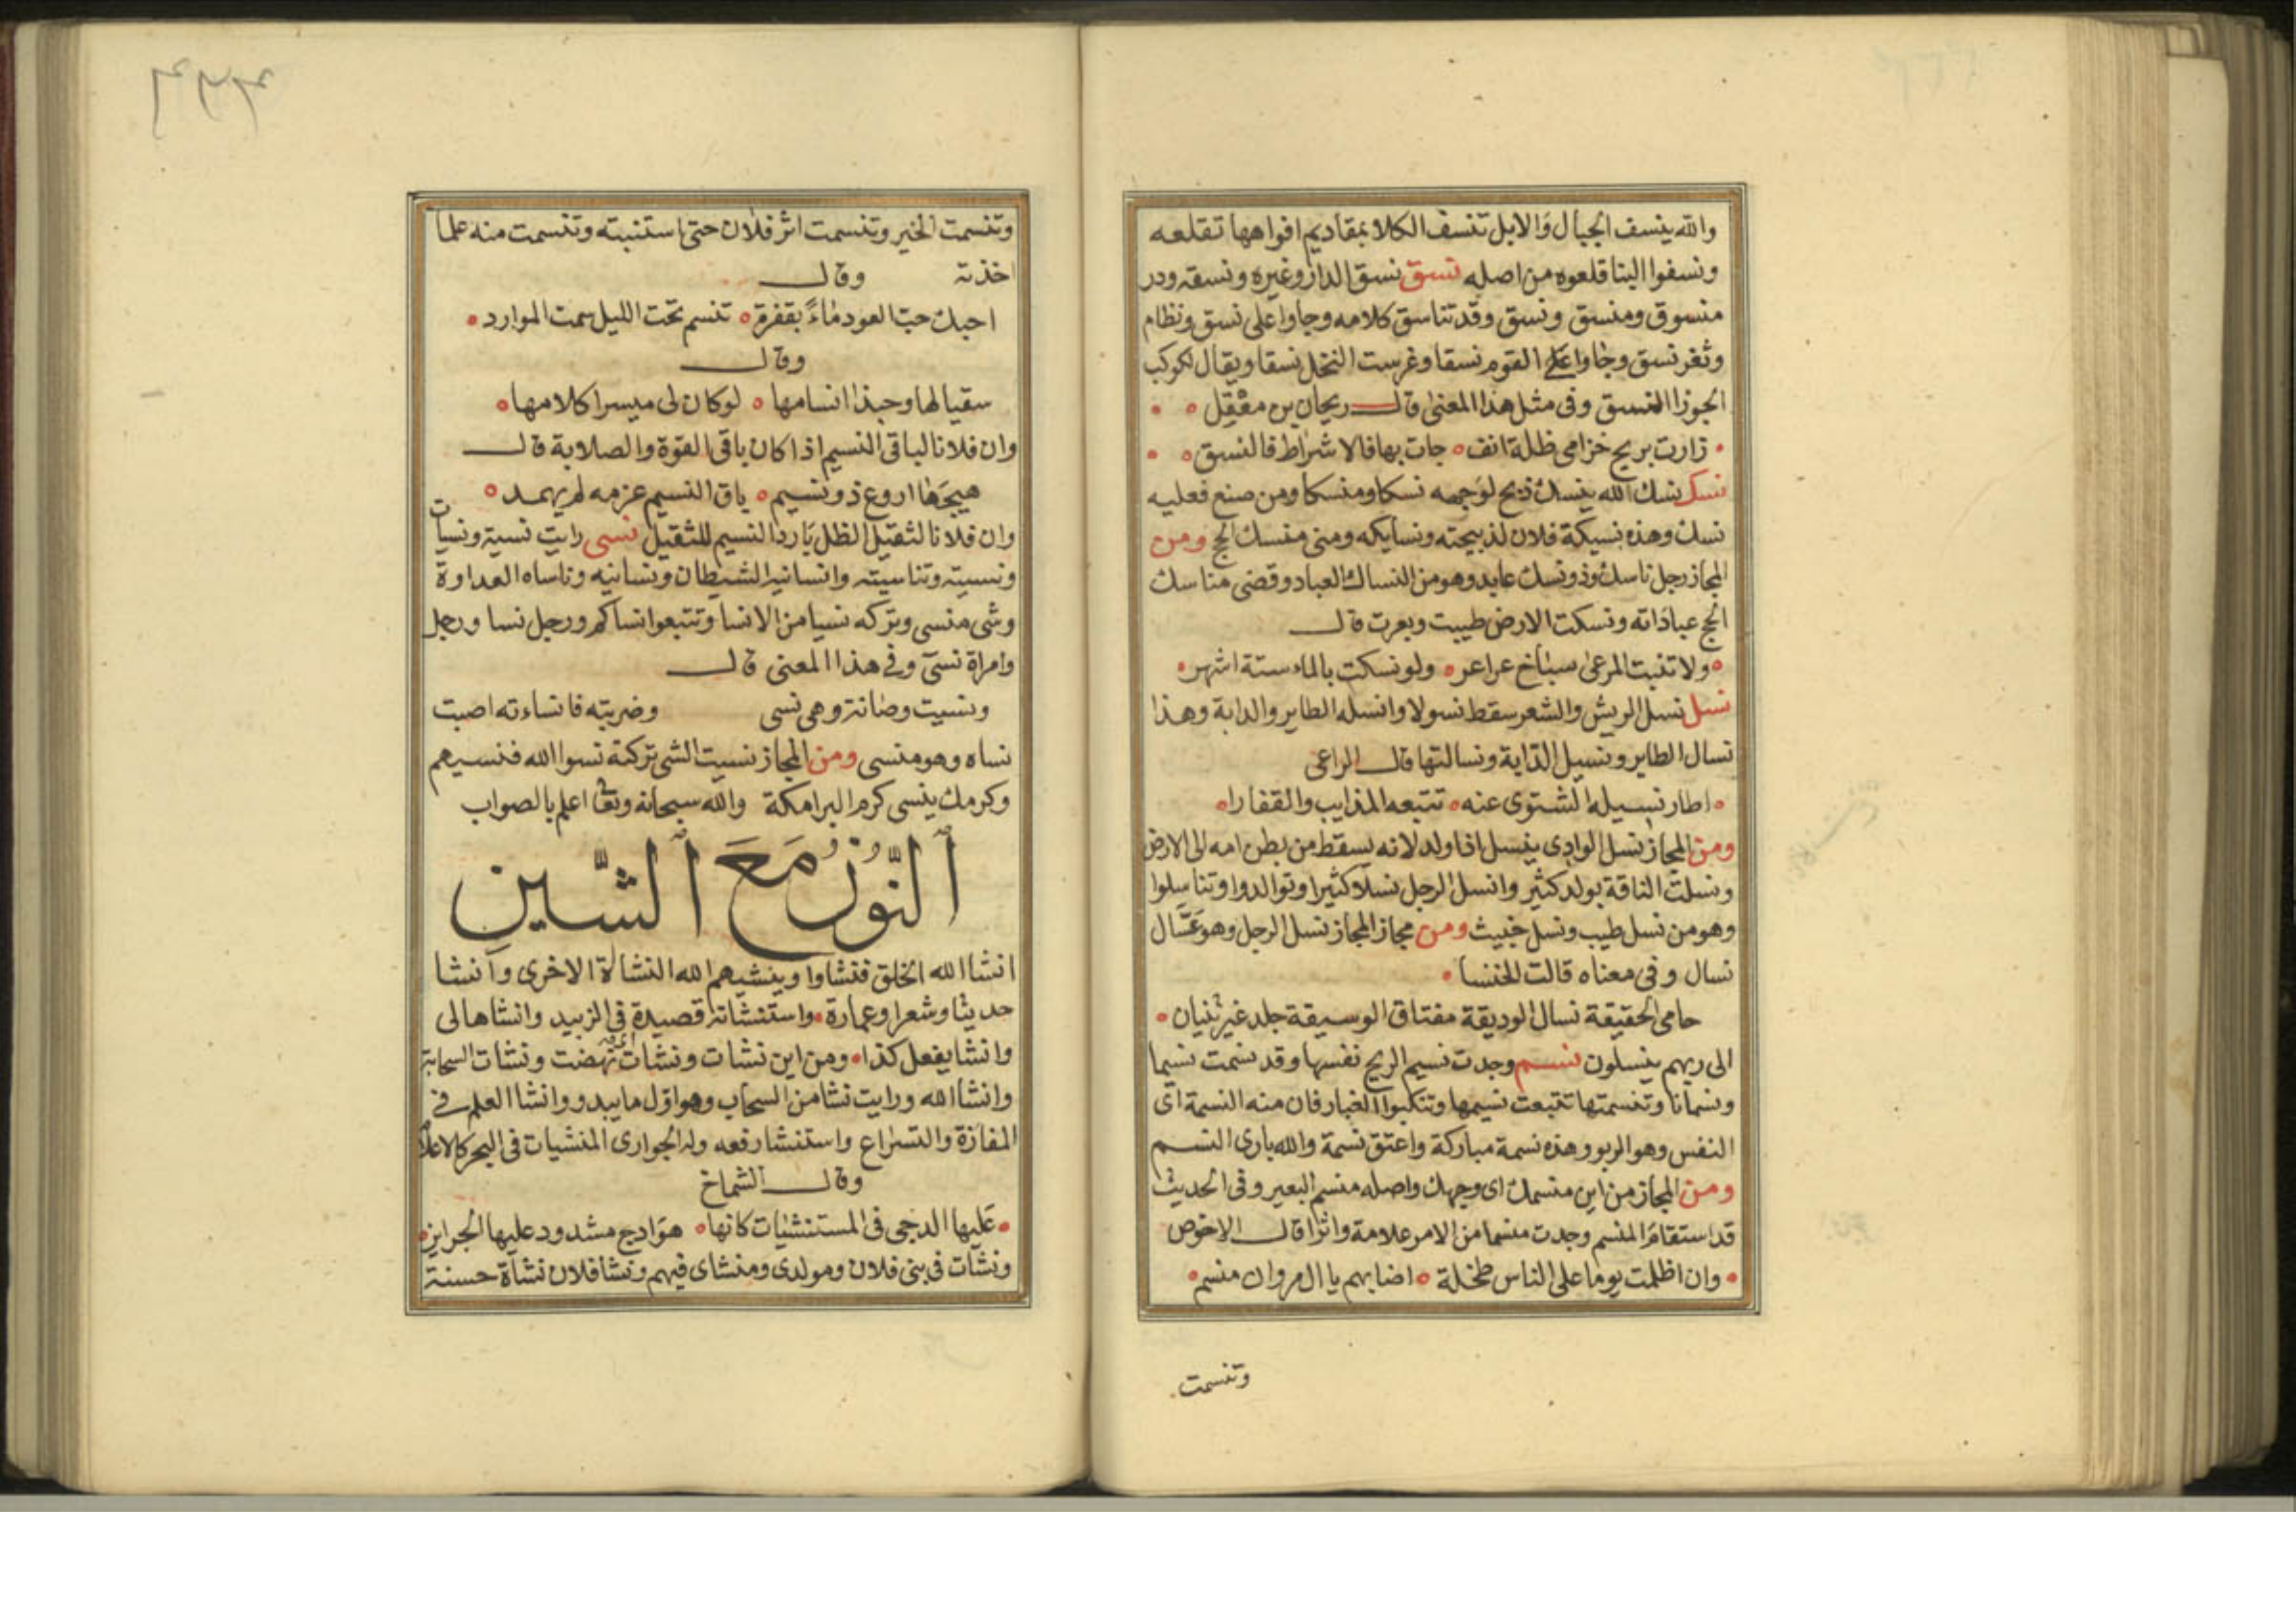 والله ينسف الجبال والابل تنسف الكلا بمقاديم افواهها تقلعه
ونسفوا البنا قلعوه من اصله نسق نسق الدار وغيره ونسقه ودر
منسوق ومنسق ونسق وقد تناسق كلامه وجاوا على نسق ونظام
وثغر نسق وجاوا على القوم نسقا وغرست النخل نسقا ويقال لكوكب
الجوزا النسق وفى مثل هذا المعنى قال ريحان بن معقل
زارت بريح خزامى ظلة انف جات بها فالاشراط فالنسق
نسك نسك الله ينسك ذبح لوجهه نسكا ومنسكا ومن صنع فعليه
نسك وهذه نسيكة فلان لذبيحته ونسايكه ومنى منسك الحج ومن
المجاز رجل ناسك وذو نسك عابد وهو من النساك العباد وقضى مناسك
الحج عباداته ونسكت الارض طيبت وبعرت قال
ولا تنبت المرعى سباخ عراعر ولو نسكت بالماء ستة اشهر
نسل نسل الريش والشعر سقط نسولا وانسله الطاير والدابة وهذا
نسال الطاير ونسيل الدابة ونسالتها قال الراعى
اطار نسيله الشتوى عنه تتبعه المذايب والقفارا
ومن المجاز نسل الوادى ينسل اذا ولد لانه يسقط من بطن امه الى الارض
ونسلت الناقة بولد كثير وانسل الرجل نسلا كثيرا وتوالدوا وتناسلوا
وهو من نسل طيب ونسل خبيث ومن مجاز المجاز نسل الرجل وهو عسال
نسال وفى معناه قالت للخنسا
حامى الحقيقة نسال الوديقة مفتاق الوسيقة جلد غير ثنيان
الى ربهم ينسلون نسم وجدت نسيم الريح نفسها وقد نسمت نسيما
ونسمانا وتنسمتها تتبعت نسيمها وتنكبوا الغبار فان منه النسمة اى
النفس وهو الربو وهذه نسمة مباركة واعتق نسمة والله بارى النسم
ومن المجاز من اين منسمك اى وجهك واصله منسم البعير وفى الحديث
قد استقام المنسم وجدت منسما من الامر علامة واثرا قال الاخوص
وان اظلمت يوما على الناس طخلة اضا بهم يا ال مروان منسم
وتنسمت
وتنسمت الخير وتنسمت اثر فلان حتى استنبته وتنسمت منه علما
اخذته وقال
احبك حب العود ماء بقفرة تنسم تحت الليل سمت الموارد
وقال
سقيا لها وحبذا انسامها لو كان لى ميسرا كلامها
وان فلانا لباقى النسيم اذا كان باقى القوة والصلابة قال
هيجها اروع ذو نسيم باق النسيم عزمه لم يهمد
وان فلانا لثقيل الظل بارد النسيم للثقيل نسى رايت نسية ونسيات
ونسيته وتناسيته وانسانيه الشيطان ونسانيه وناساه العداوة
وشى منسى وتركه نسيا من الانسا وتتبعوا نساكم ورجل نسا ورجل
وامراة نسى وفى هذا المعنى قال
ونسيت وصانة وهى نسى وضربته فانساءته اصبت
نساه وهو منسى ومن المجاز نسيت الشى تركته نسوا الله فنسيهم
وكرمك ينسى كرم البرامكة والله سبحانه وتعا اعلم بالصواب
النون مع الشين
انشا الله الخلق فنشاوا وينشيهم الله النشاة الاخرى وانشا
حديثا وشعرا وعمارة واستنشاته قصيدة فى الزبيد وانشاها لى
وانشا يفعل كذا ومن اين نشات ونشات نهضت ونشات السحابة
وانشا الله ورايت نشا من السحاب وهو اول ما يبدو وانشا العلم فى
المفازة والتسراع واستنشا رفعه وله الجوارى المنشيات فى البحر كالاعلام
وقال الشماخ
عليها الدجى فى المستنشيات كانها هوادج مشدود عليها الجراين
ونشات فى بنى فلان ومولدى ومنشاى فيهم ونشا فلان نشاة حسنة